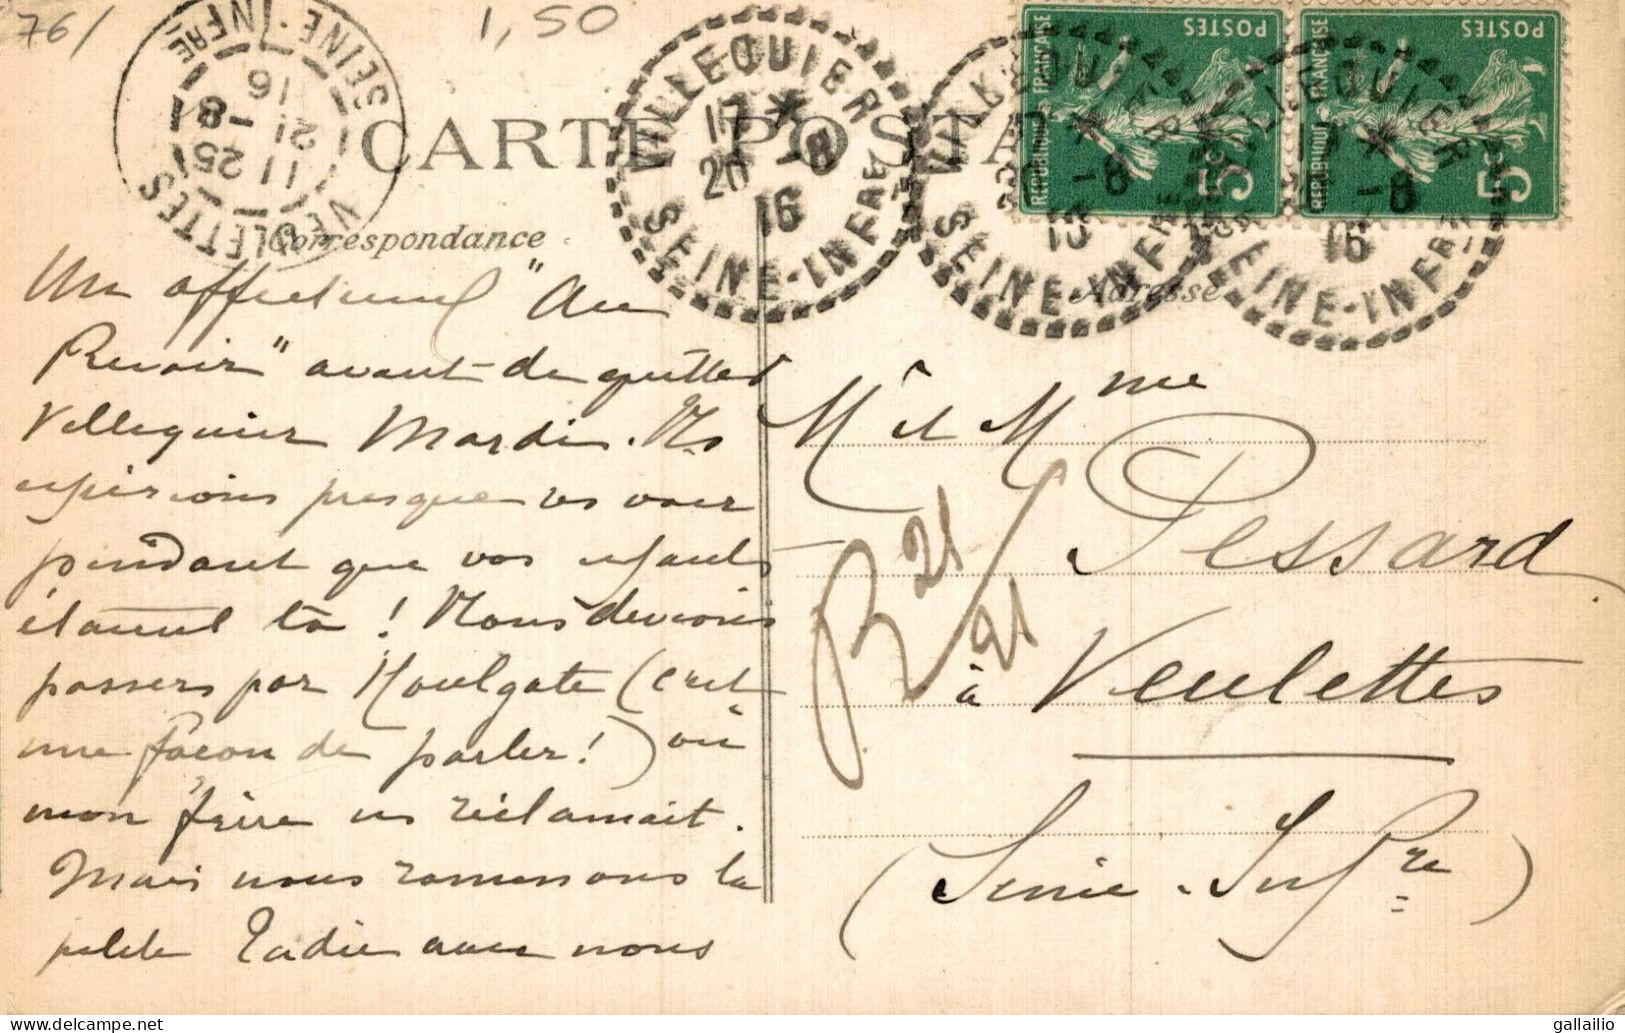 76/
1,50
CARTE POSTA
VEULETTES
SEINE-INFRE
11
25 - 8
21
16
VILLEQUIER
17 *
20 -8
16
SEINE-INFRE
VILLEQUIER
-8
16
SEINE-INFRE
17 *
-8
16
SEINE-INFRE
REPUBLIQUE FRANÇAISE
POSTES
5c
REPUBLIQUE FRANÇAISE
POSTES
5c
Correspondance
Adresse
Un affectueux "Au
Revoir" avant de quitter
Villequier Mardi. Ns
espérions presque vs voir
pendant que vos enfants
étaient là ! Nous devions
passer par Houlgate (c'est
une façon de parler !) où
mon frère ns réclamait.
Mais nous ramenons la
petite Ladie avec nous
Mr et Mme
Pessard
à Veulettes
(Seine-Infre)
21
21
gallailio